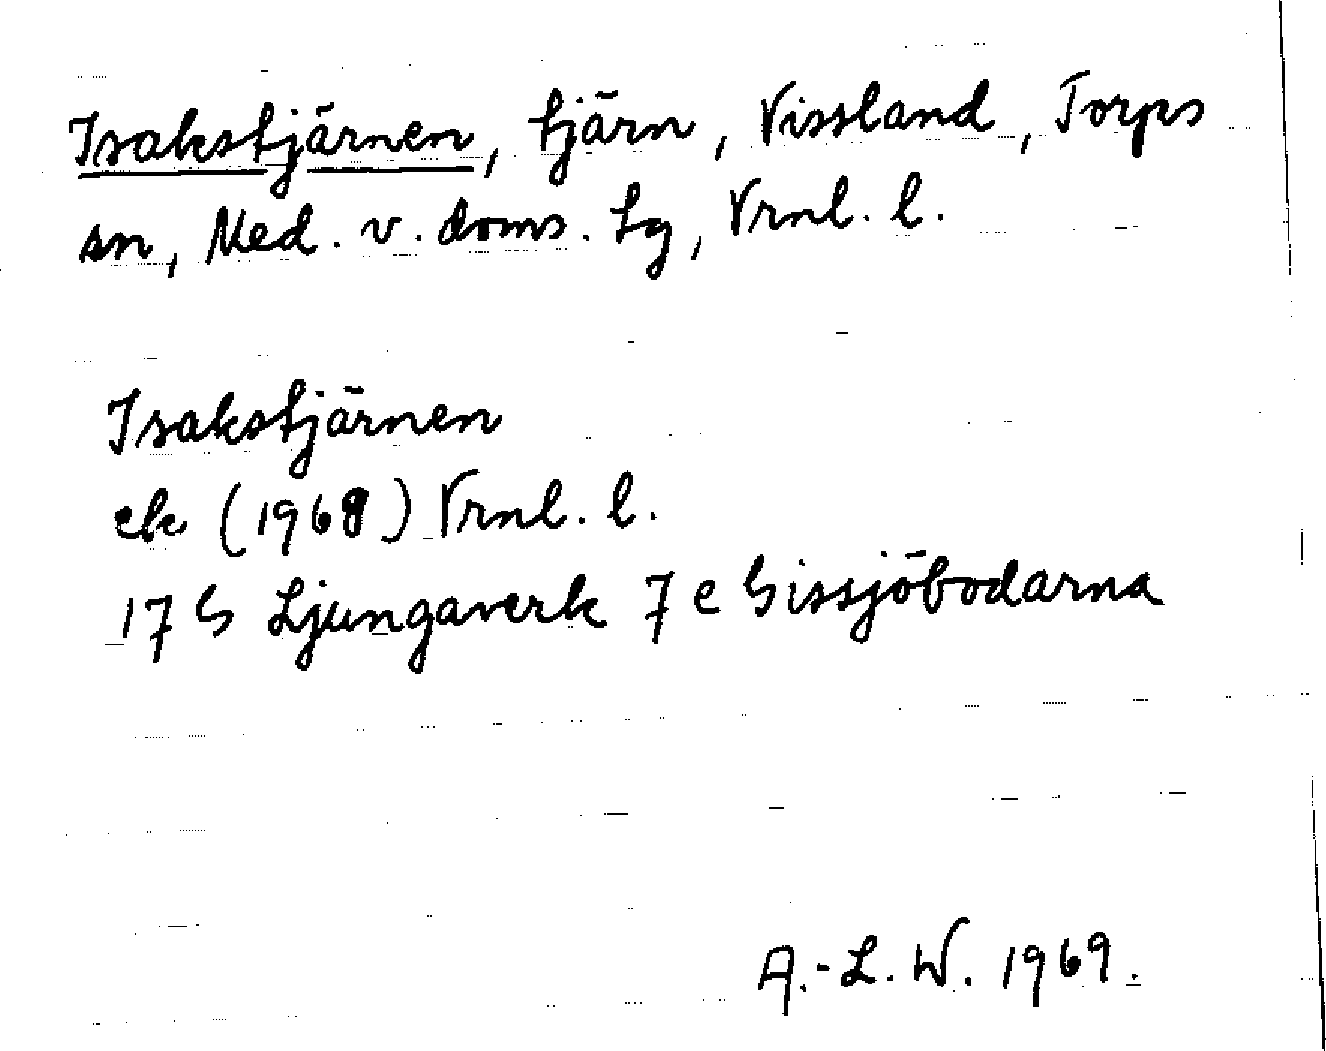 Isakstjärnen, tjärn, Vissland, Torps
sn, Med. v. doms. tg, Vrnl. l.
Isakstjärnen
ek (1968) Vrnl. l.
17 G Ljungaverk 7 e Gissjöbodarna
A.-L. W. 1969.